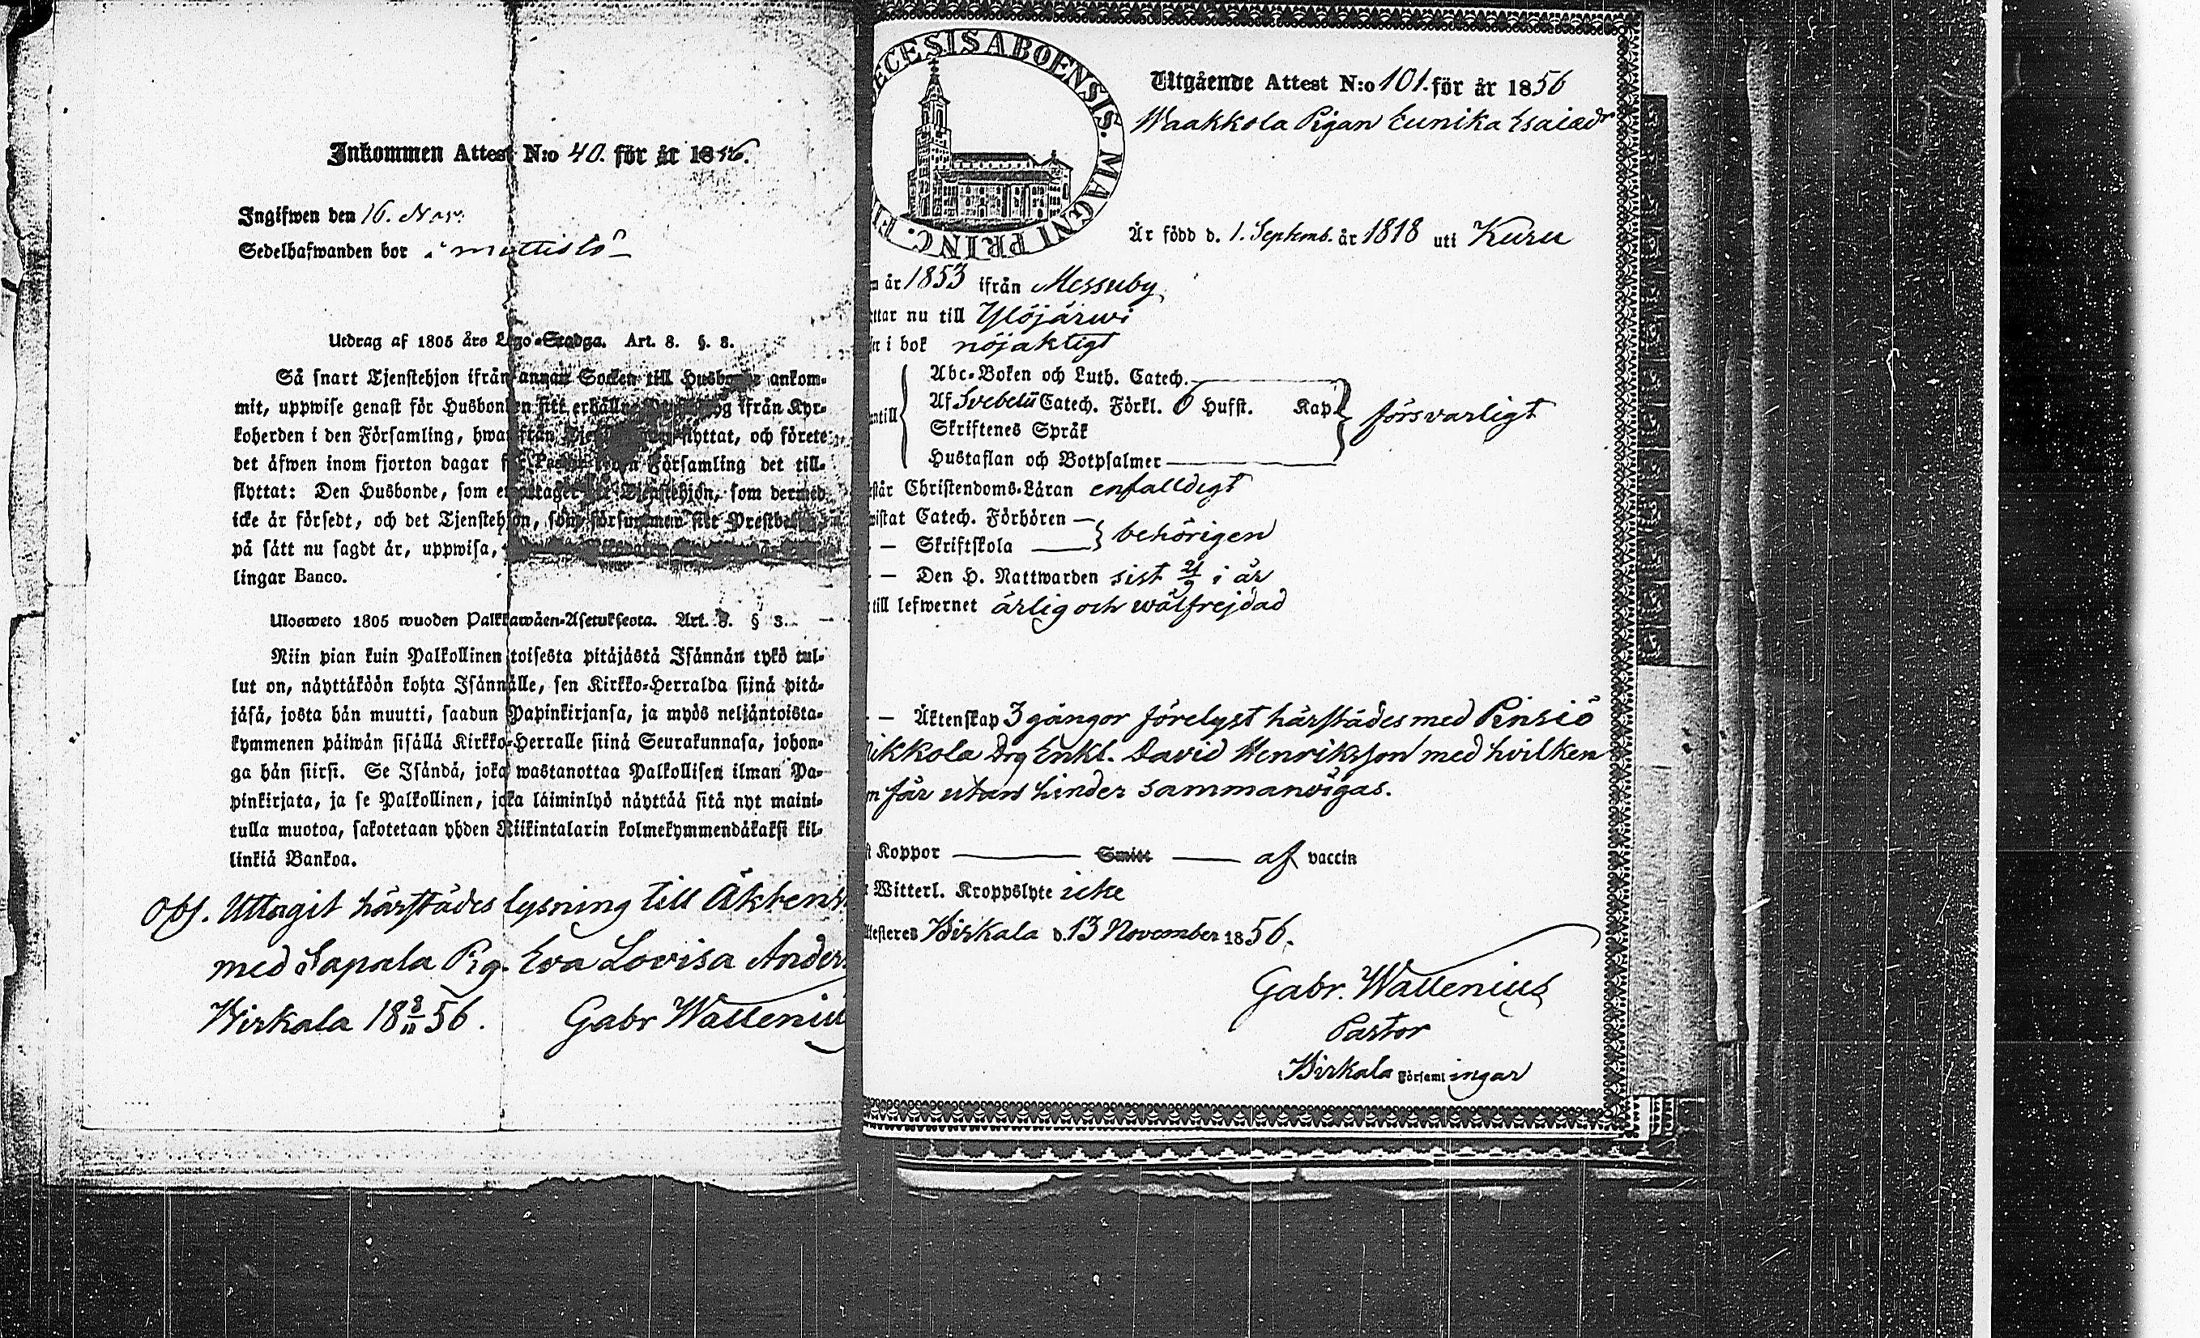 Inkommen Attest N:o 40. för år 1856.
Ingifwen den 16. Nov.
Sedelhafwanden bor i mattistö
Utdrag af 1805 års Lego-Stadga. Art. 8. §. 3.
Så snart Tjenstehjon ifrån annan Socken till Husbonde ankom-
mit, uppwise genast för Husbonden sitt erhållne ifrån Kyr-
koherden i den Församling, hwarifrån flyttat, och förete
det äfwen inom fjorton dagar Församling det till-
flyttat: Den Husbonde, som emottager Tjenstehjon, som dermed
icke är försedt, och det Tjenstehjon, som försummar sitt
på sätt nu sagdt är, uppwisa,
lingar Banco.
Ulosweto 1805 wuoden Palkkawäen-Asetuksesta. Art. 8. § 3.
Niin pian kuin Palkollinen toisesta pitäjästä Isännän tykö tul-
lut on, näyttäköön kohta Isännälle, sen Kirkko-Herralda siinä pitä-
jäsä, josta hän muutti, saadun Papinkirjansa, ja myös neljäntoista-
kymmenen päiwän sisällä Kirkko-Herralle siinä Seurakunnasa, johon-
ga hän siirsi. Se Isändä, joka wastanottaa Palkollisen ilman Pa-
pinkirjata, ja se Palkollinen, joka läiminlyö näyttää sitä nyt maini-
tulla muotoa, sakotetaan yhden Riikintalarin kolmekymmendäkaksi kil-
linkiä Bankoa.
Obs. Uttagit härstädes lysning till Äktens
med Sapala Pig. Eva Lovisa Anders
Birkala 18 8/11 56. Gabr Walleniu
ECESIS ABOENSIS. MAGNI PRINC. FI
Utgående Attest N:o 101. för år 1856
Waakkola Pigan Eunika Esaiædr
Är född d. 1. Septemb. år 1818 uti Kuru
år 1853 ifrån Messuby
ttar nu till Ylöjärwi
i bok nöjaktigt
Abc-Boken och Luth. Catech.
ntill Af Svebelii Catech. Förkl. O Hufst. Kap. försvarligt
Skriftenes Språk
Hustaflan och Botpsalmer
står Christendoms-Läran enfalldigt
wistat Catech. Förhören
— Skriftskola behörigen
— Den H. Nattwarden sist 21/9 i år
till lefwernet ärlig och wälfrejdad
— Äktenskap 3 gångor förelyst härstädes med Pinsiö
ikkola Drg Enkl. David Henriksson med hvilken
n får utan hinder sammanvigas.
Koppor Smitt af vaccin
Witterl. Kroppslyte icke
ttesteres Birkala d. 13 November 1856.
Gabr. Wallenius
Pastor
i Birkala Församlingar